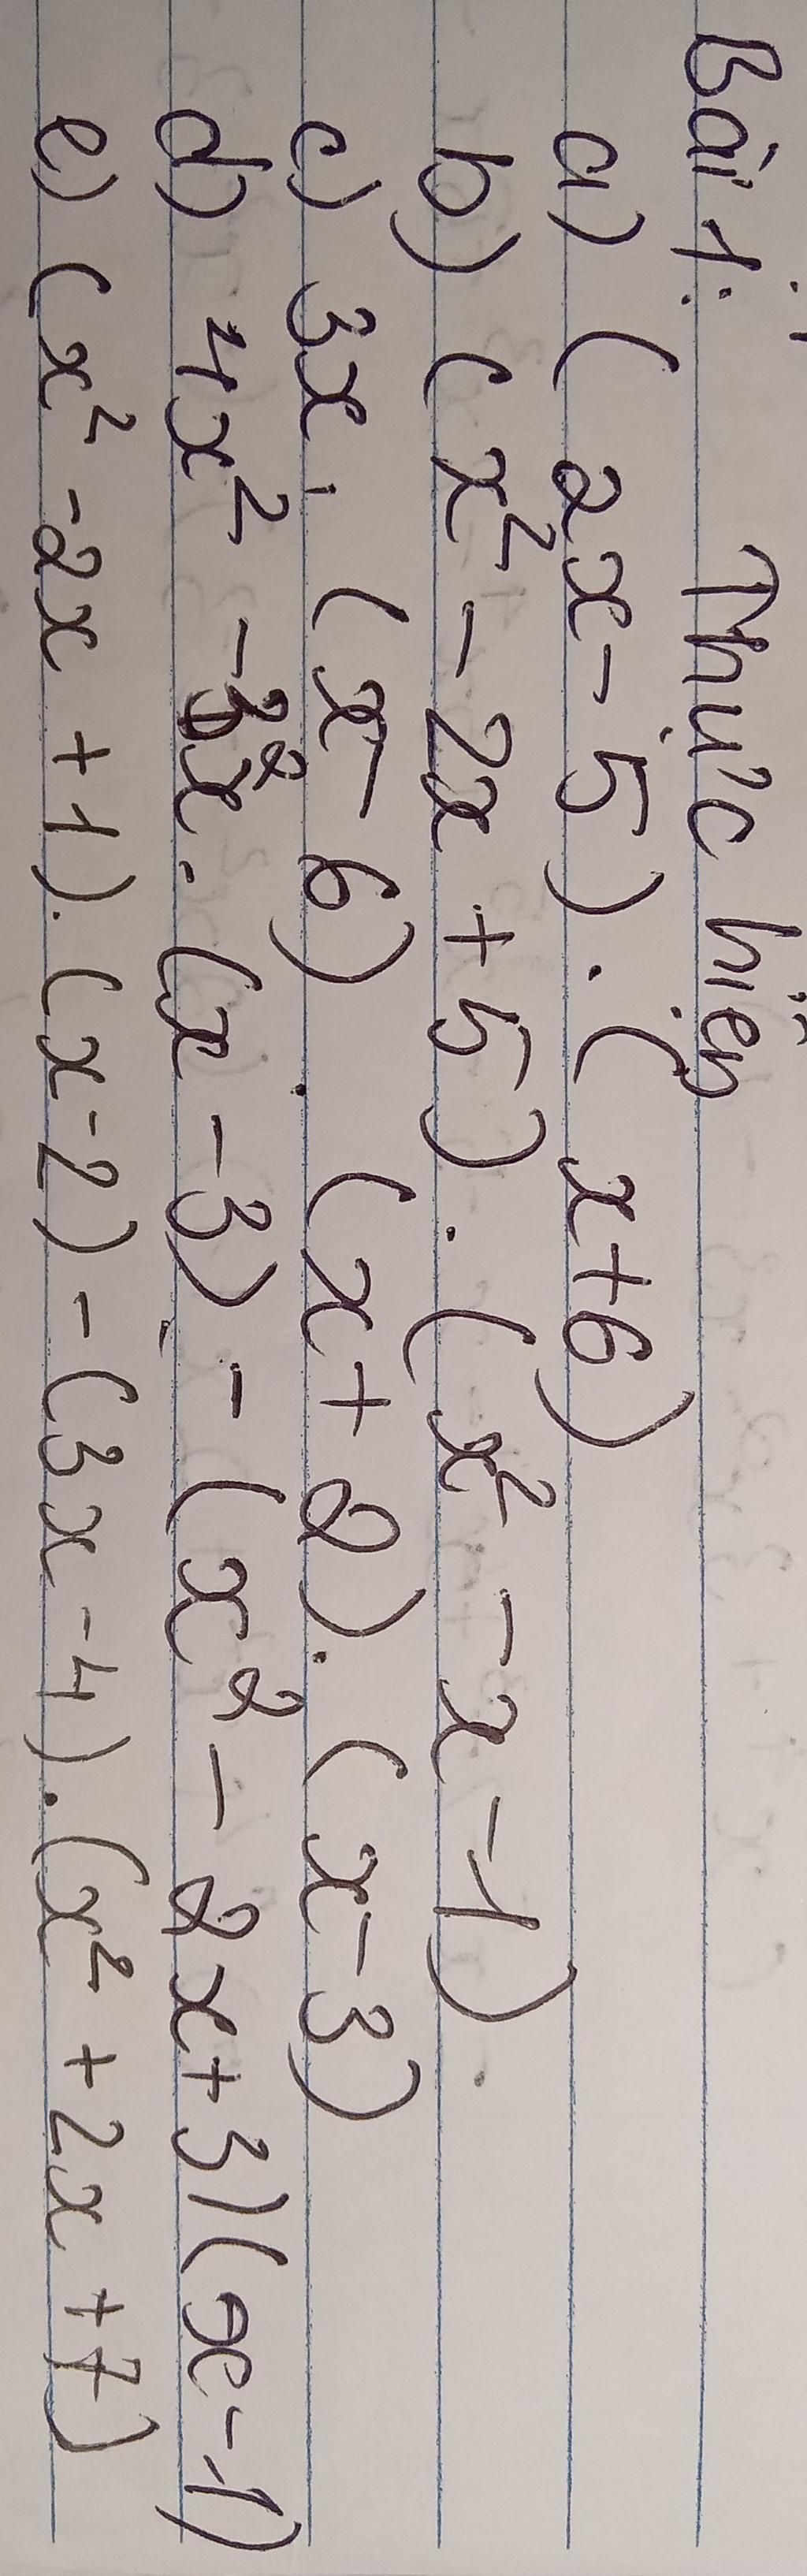 Bài 1: Thực hiện
a) (2x - 5) . (x + 6)
b) (x² - 2x + 5) . (x² - x - 1)
c) 3x . (x - 6) . (x + 2) . (x - 3)
d) 4x² - 3x . (x - 3) - (x² - 2x + 3)(x - 1)
e) (x² - 2x + 1) . (x - 2) - (3x - 4) . (x² + 2x + 7)